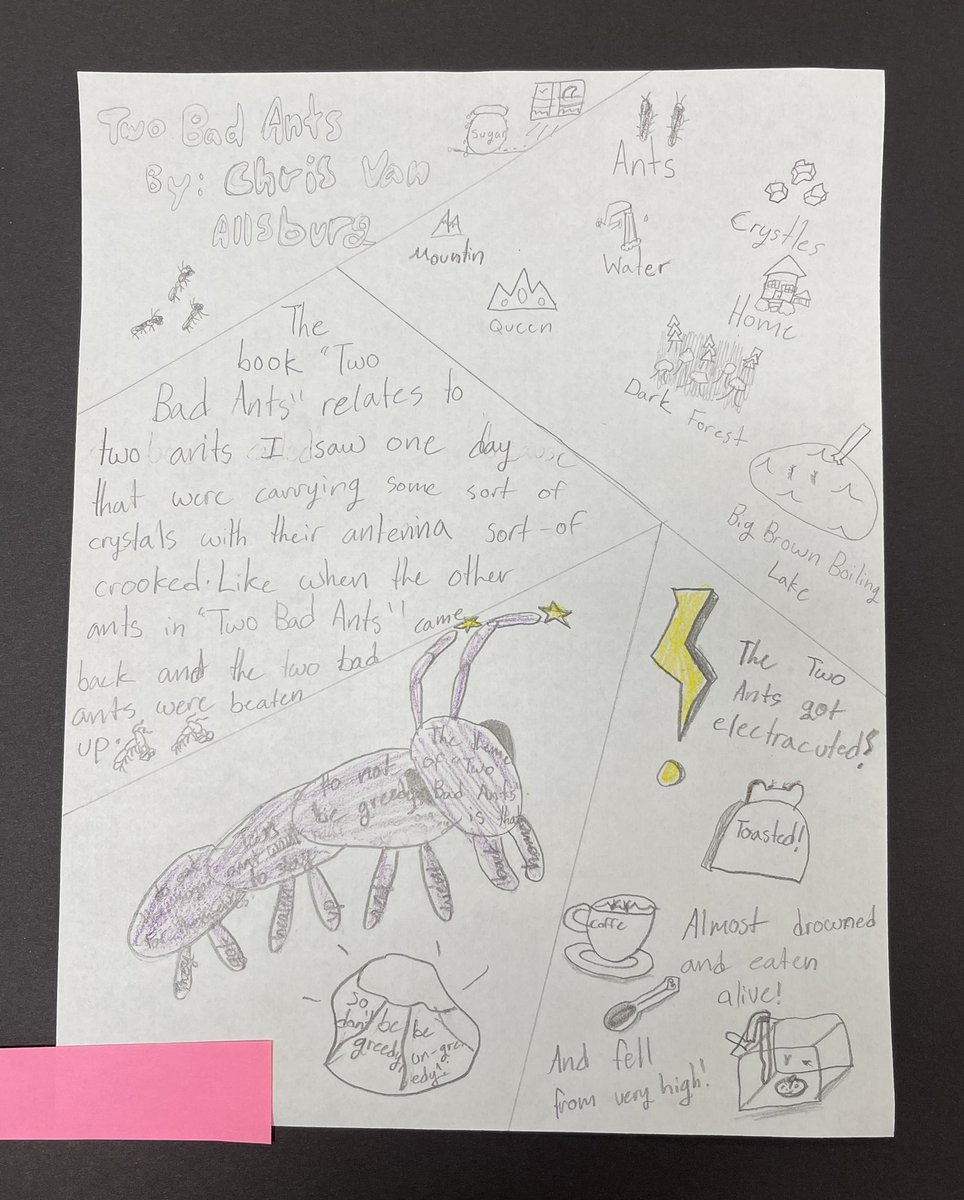 Two Bad Ants
By: Chris Van
Allsburg
Sugar
Ants
Crystles
Mountin
Water
Queen
Home
Dark Forest
Big Brown Boiling
Lake
The
book "Two
Bad Ants" relates to
two ants I saw one day
that were carrying some sort of
crystals with their antenna sort-of
crooked. Like when the other
ants in "Two Bad Ants" came
back and the two bad
ants were beaten
up.
The theme
of "Two
Bad Ants"
is that
to not
be greedy
ants want
to stay
for themselves.
back
home
and
up
so
don't be
greedy
be
un-gre
edy!
The Two
Ants got
electracuted!
Toasted!
coffe
Almost drowned
and eaten
alive!
And fell
from very high!